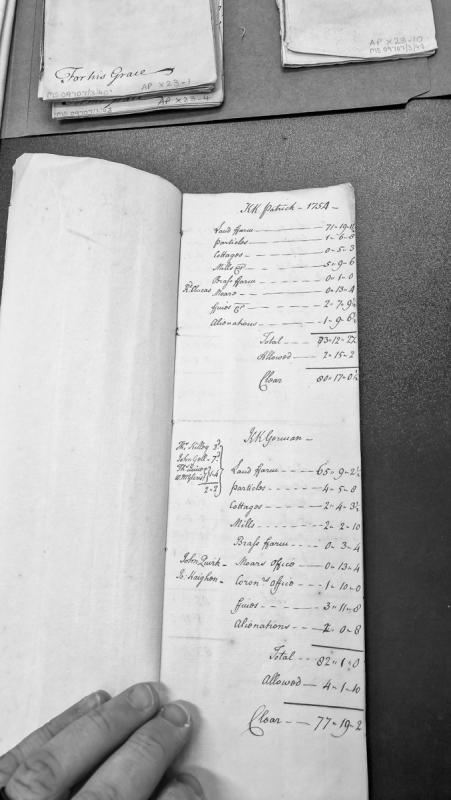 For his Grace
MS 09707/3/40
AP X23-1
AP X23-4
AP X23-10
MS 09707/3/49
KK Patrick - 1754 -
Land ffarm - 71-19-11
Particles - 1-6-8
Cottages - 0-5-3
Mills &c - 5-9-6
Brass ffarm - 0-1-0
Moars - 0-13-4
ffines &c - 2-7-9½
Alienations - 1-9-6½
Total - 83-12-2½
Allowed - 2-15-2
Clear 80-17-0½
KK German -
Tho Killey 3d
John Gell - 7d
2-2
Land ffarm - 65-9-2½
Particles - 4-5-8
Cottages - 2-4-3½
Mills - 2-2-10
Brass ffarm - 0-3-4
John Quirk - Moars Office - 0-13-4
Jo: Kaighen - Coronrs Office - 1-10-0
ffines - 3-11-8
Alienations - 2-0-8
Total - 82-1-0
Allowed - 4-1-10
Clear - 77-19-2